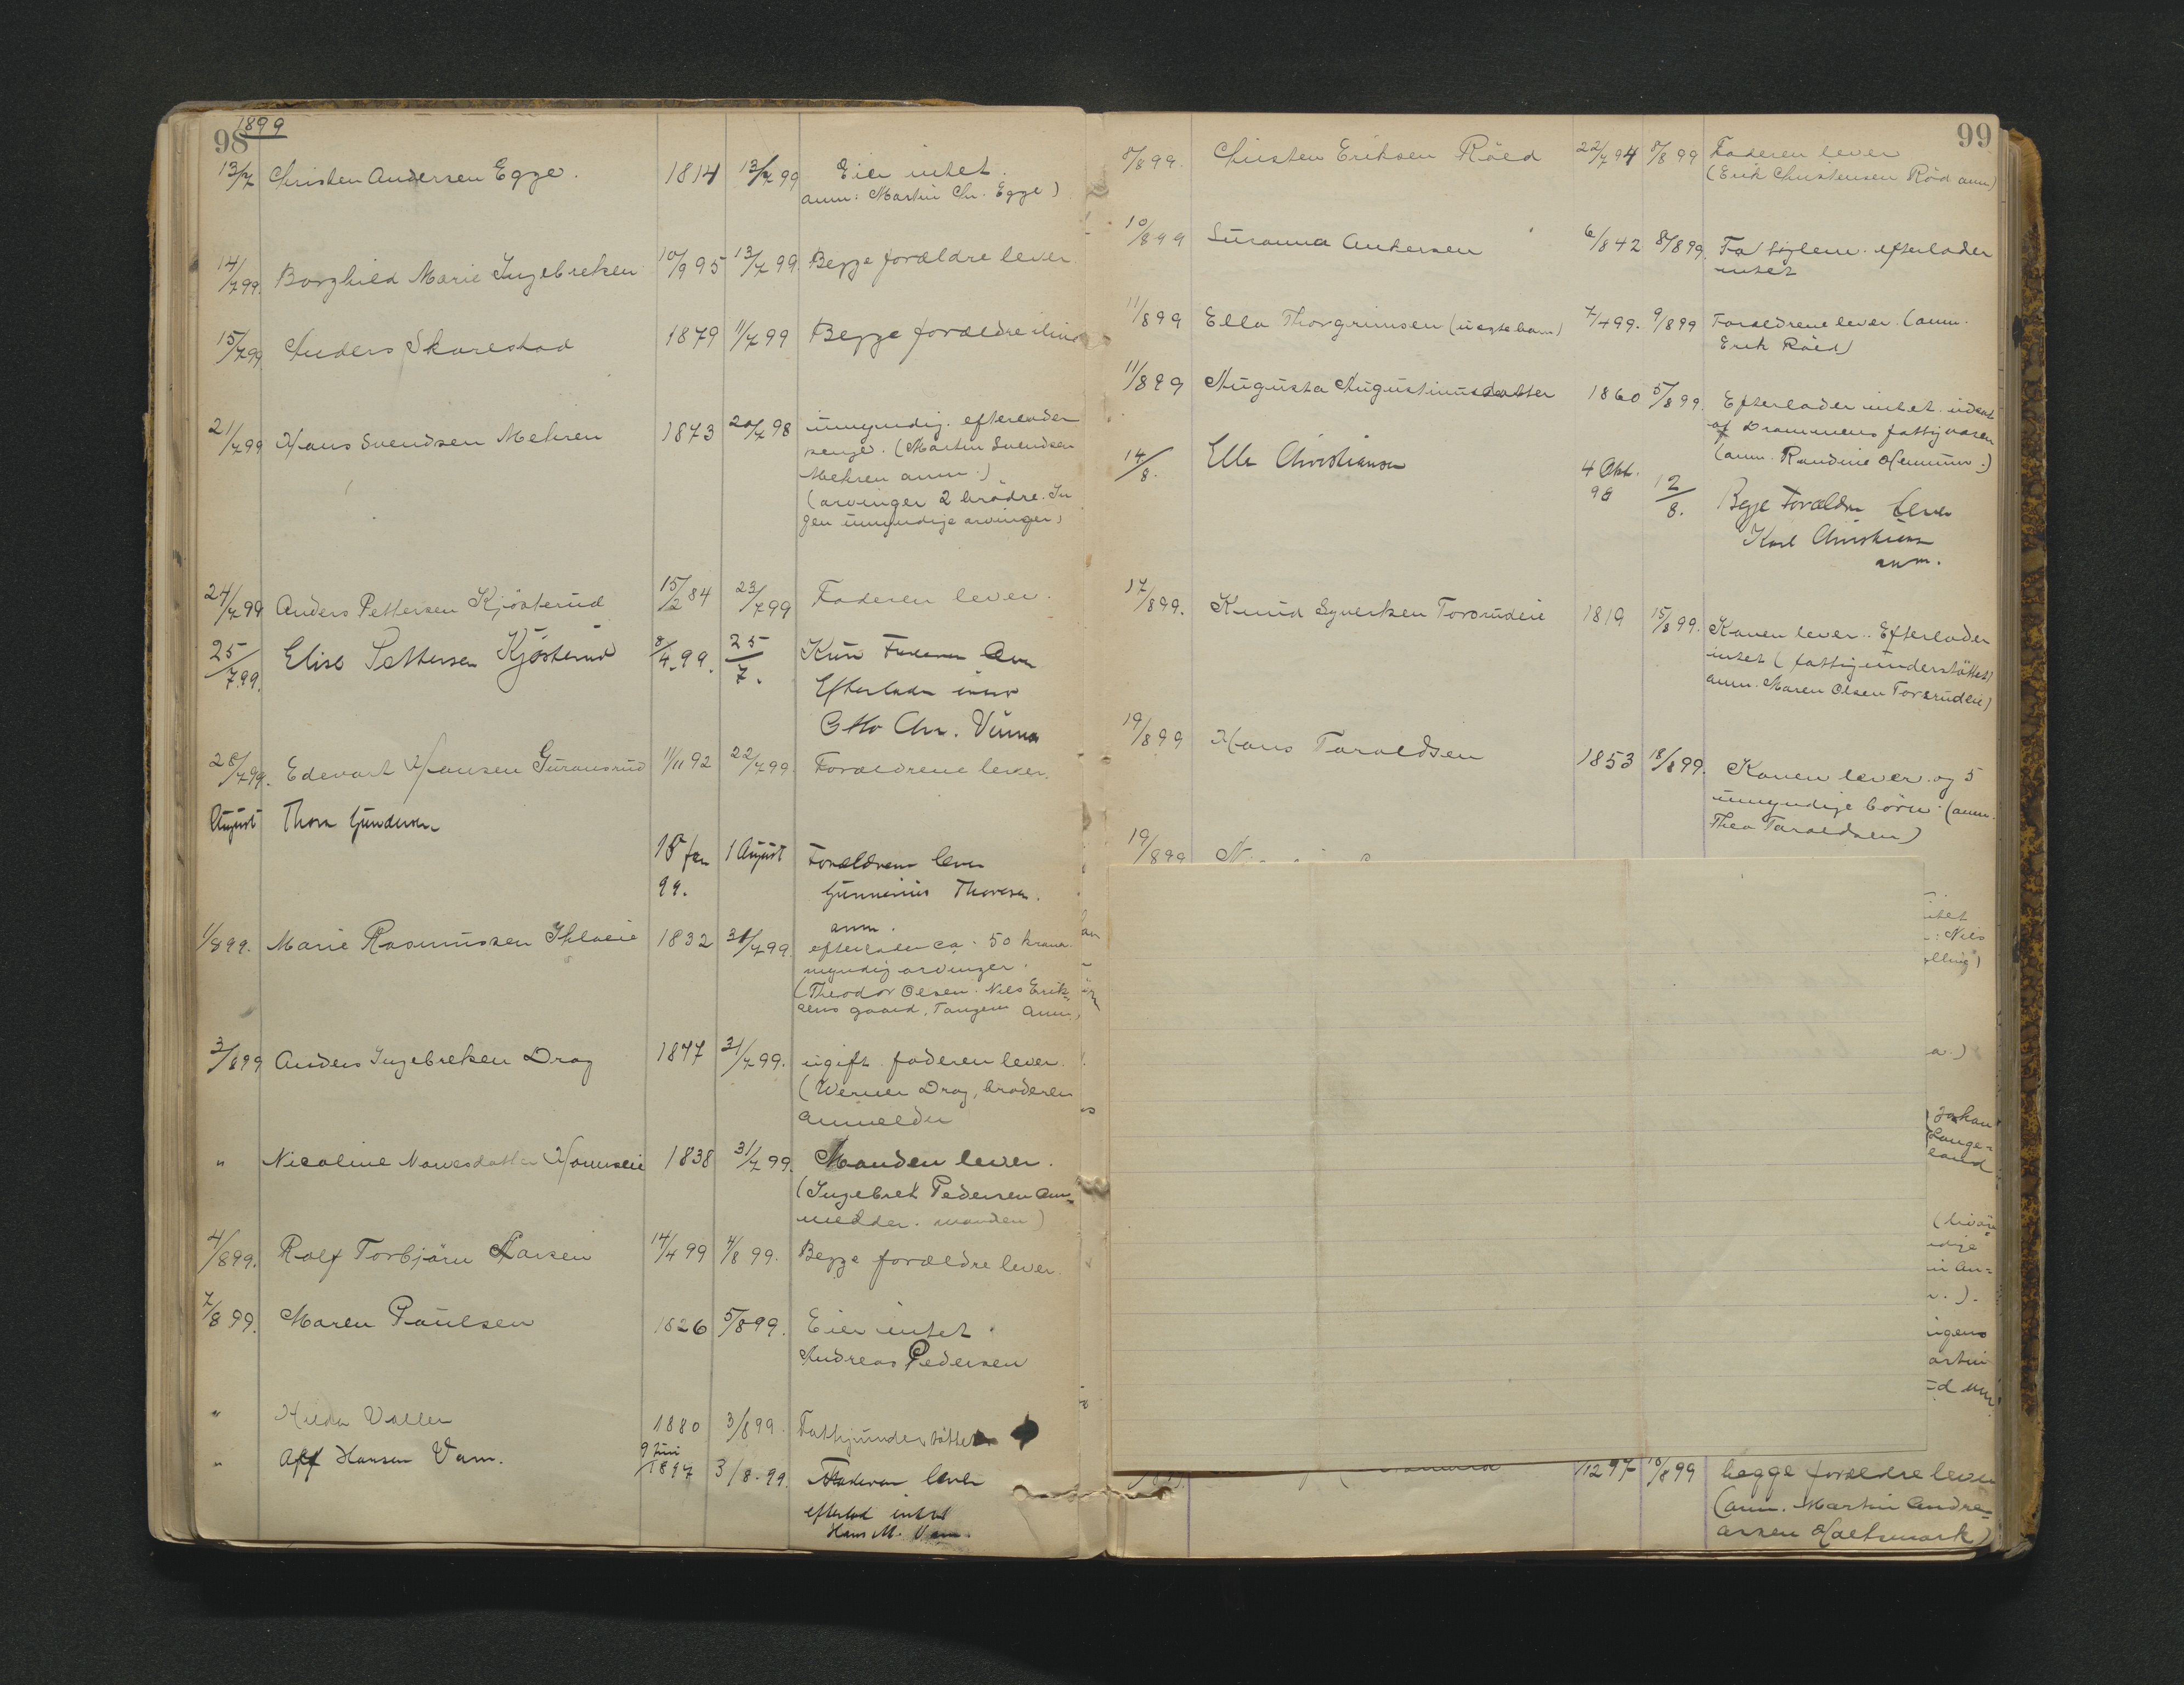 98
1899
13/7 Christen Andersen Egge. 1814 13/7 99 Eier intet.
anm: Martin Chr. Egge)
14/7 99. Borghild Marie Ingebretsen 10/9 95 13/7 99. Begge forældre lever
15/7 99 Anders Skarestad 1879 11/7 99 Begge forældre
21/7 99 Hans Svendsen Mehren 1873 20/7 98 umyndig. efterlader
penge. (Martin Svendsen
Mehren anm.)
(arvinger 2 brødre. In
gen umyndige arvinger)
24/7 99 Anders Pettersen Kjösterud 15/2 84 23/7 99 Faderen lever.
25/7 99. Elise Pettersen Kjösterud 8/4. 99. 25/7. Kun Faderen
Efterlader
Otto Chr.
28/7 99. Edevart Hansen Guransrud 1/11 92 22/7 99. Forældrene lever.
August Thora Gundersen
15 jan 1 August Forældrene lever
99. Gunnerius Thoresen.
anm.
1/8 99. Marie Rasmussen 1832 31/7 99. efterlader ca. 50 kroner.
myndig arvinger.
(Theodor Olsen. Nils Erik-
sens gaard, Tangen anm.)
3/8 99 Anders Ingebretsen Drag 1877 31/7 99. ugift. faderen lever.
(Werner Drag, broderen
anmelder
" Nicoline 1838 31/7 99. Manden lever.
(Ingebret Pedersen an-
melder. manden)
4/8 99. Rolf Torbjörn Larsen 14/4 99 4/8 99. Begge forældre lever.
7/8 99. Maren Paulsen 1826 5/8 99. Eier intet.
Andreas Pedersen
" Hilda Vollen 1880 3/8 99. Fattigunderstöttet
" Alf Hansen Vam. 9 Juni
1897 3/8-99. Faderen lever
efterlod intet
Hans M. Vam.
99
8/8 99. Christen Eriksen Röed 22/7 94 8/8 99 Faderen lever
(Erik Christensen Röd anm)
10/8 99 Susanna Andersen 6/8 42 8/8 99. efterlader
intet
11/8 99 Ella Thorgrimsen (uegte barn) 7/4 99. 9/8 99 Forældrene lever. (anm.
Erik Röed)
11/8 99 Augusta Augustinusdatter 1860 5/8 99. Efterlader intet. udsat
af Drammens fattigvæsen
(anm. Randine Hemmun.)
14/8. Elle Christiansen 4 Okt.
98 12/8. Begge Forældre lever
Karl Christiansen
anm.
17/8 99. Knud Syversen Torsrudeie 1819 15/8 99. Konen lever. Efterlader
intet (fattigunderstöttet)
anm. Maren Olsen Torsrudeie)
19/8 99 Hans Taraldsen 1853 18/8 99. Konen lever. og 5
umyndige börn. (anm.
Thea Taraldsen)
19/8 99 N
: Nils
a.)
Johan
Lange-
land
1297 18/8 99 begge forældre lever
(anm. Martin Andre-
assen Holtsmark)